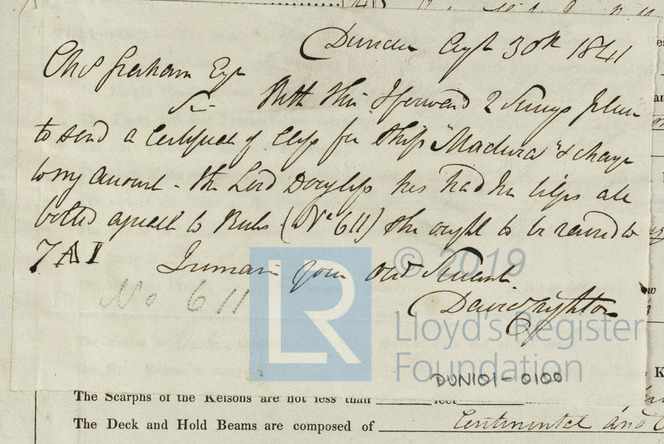 Dundee Augt 30th 1841
Chas Graham Esqr
Sir With this I forward 2 Surveys please
to send a Certificate of Class for Ship "Madura" & charge
to my account - the Lord has had her bilges all
bolted agreeable to Rules (No 611) she ought to be raised to
7 A 1 I remain your Obt Servant
No 611
© 2019
LR
Lloyd's Register
Foundation
DUN101-0100
The Scarphs of the Kelsons are not less than feet
The Deck and Hold Beams are composed of Continental and